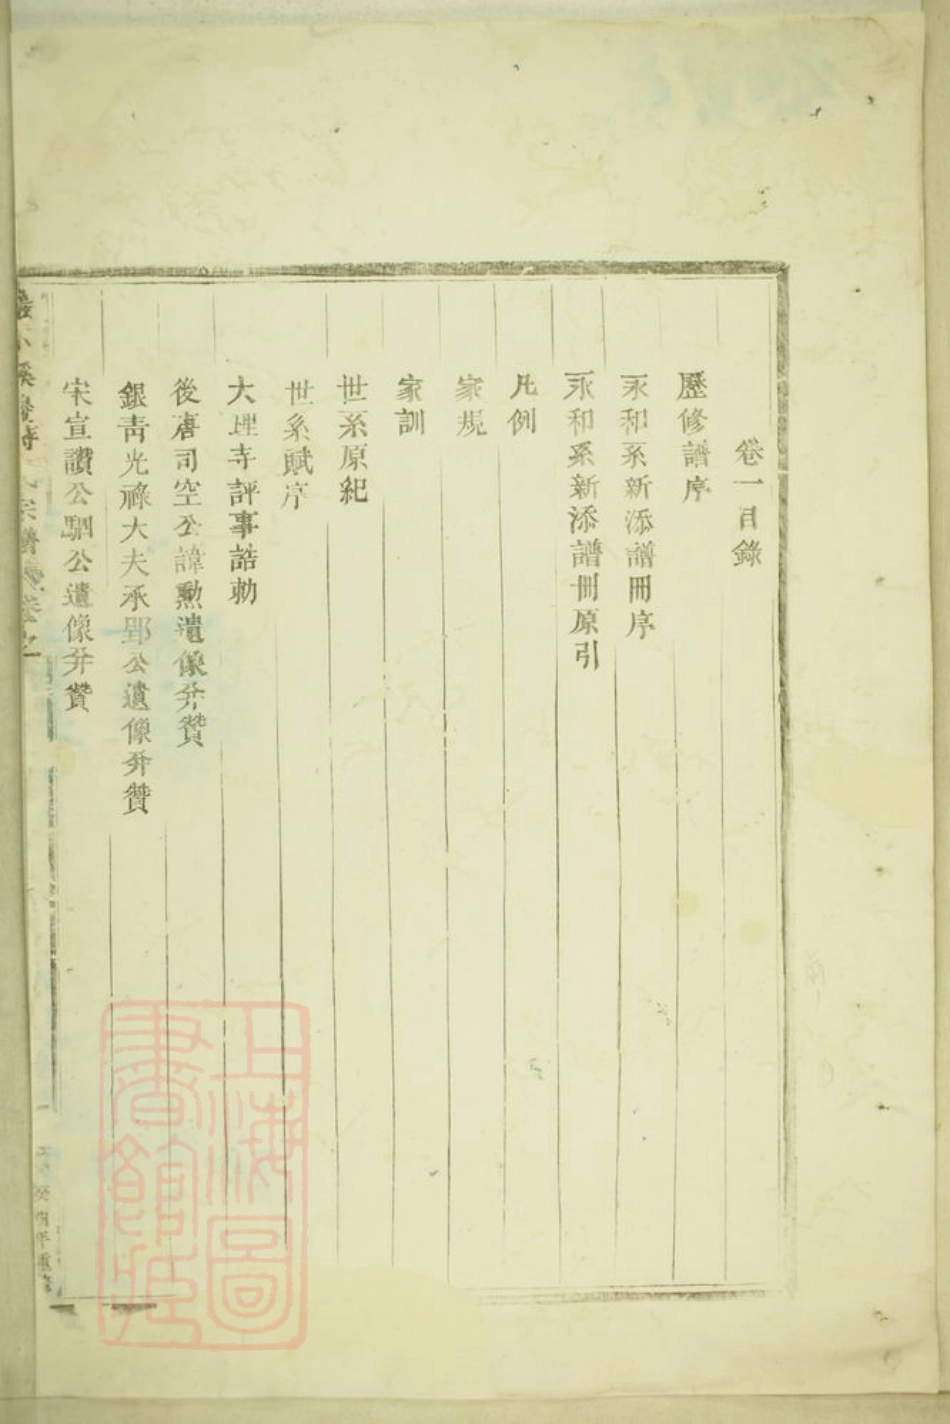 卷一目錄
歷修譜序
永和系新添譜冊序
永和系新添譜冊原引
凡例
家規
家訓
世系原紀
世系賦序
大理寺評事誥勅
後唐司空公諱勲遺像并贊
銀青光祿大夫承郢公遺像并贊
宋宣讃公駟公遺像并贊
癸酉年重修
上海圖書館藏